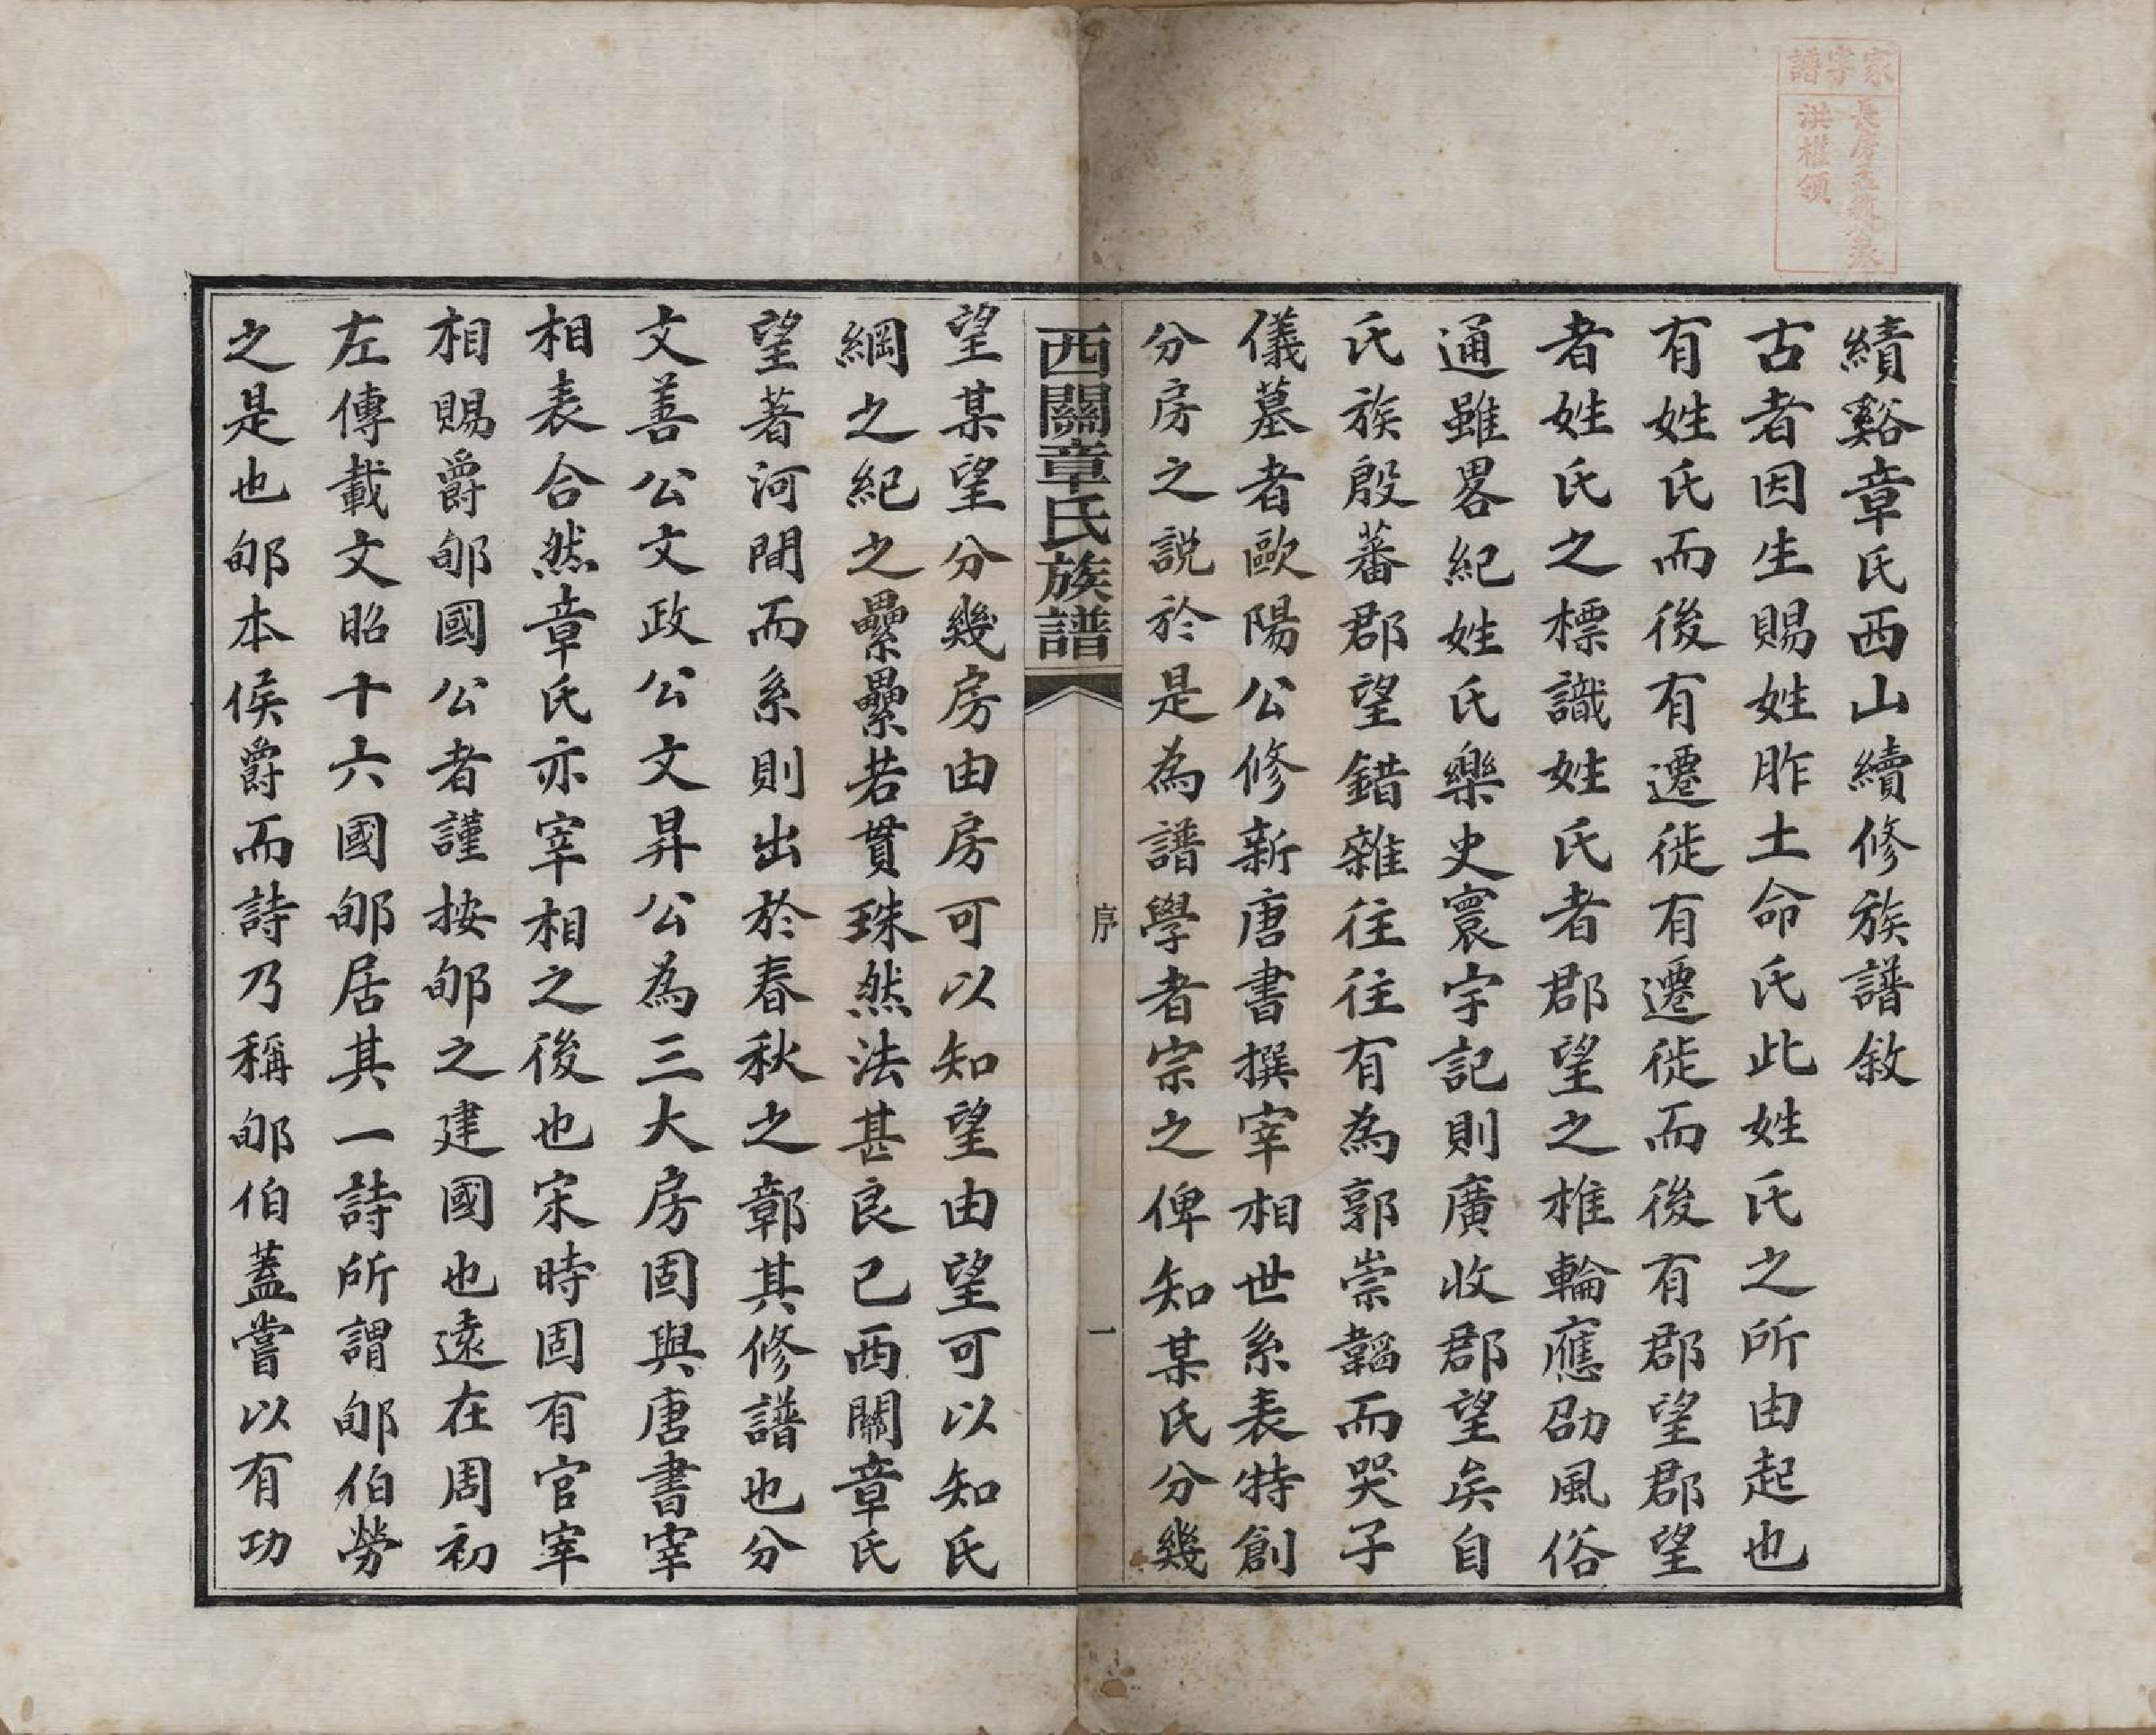 家字譜
長房五
洪權領
績谿章氏西山續修族譜敘
古者因生賜姓胙土命氏此姓氏之所由起也
有姓氏而後有遷徙有遷徙而後有郡望郡望
者姓氏之標識姓氏者郡望之椎輪應劭風俗
通雖畧紀姓氏樂史寰宇記則廣收郡望矣自
氏族殷蕃郡望錯雜往往有為郭崇韜而哭子
儀墓者歐陽公修新唐書撰宰相世系表特創
分房之說於是為譜學者宗之俾知某氏分幾
西關章氏族譜
序
一
望某望分幾房由房可以知望由望可以知氏
綱之紀之纍纍若貫珠然法甚良已西關章氏
望著河間而系則出於春秋之鄣其修譜也分
文善公文政公文昇公為三大房固與唐書宰
相表合然章氏亦宰相之後也宋時固有官宰
相賜爵郇國公者謹按郇之建國也遠在周初
左傳載文昭十六國郇居其一詩所謂郇伯勞
之是也郇本侯爵而詩乃稱郇伯蓋嘗以有功